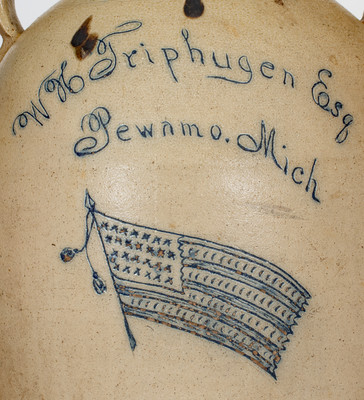 W H Triphugen Esq
Pewamo. Mich